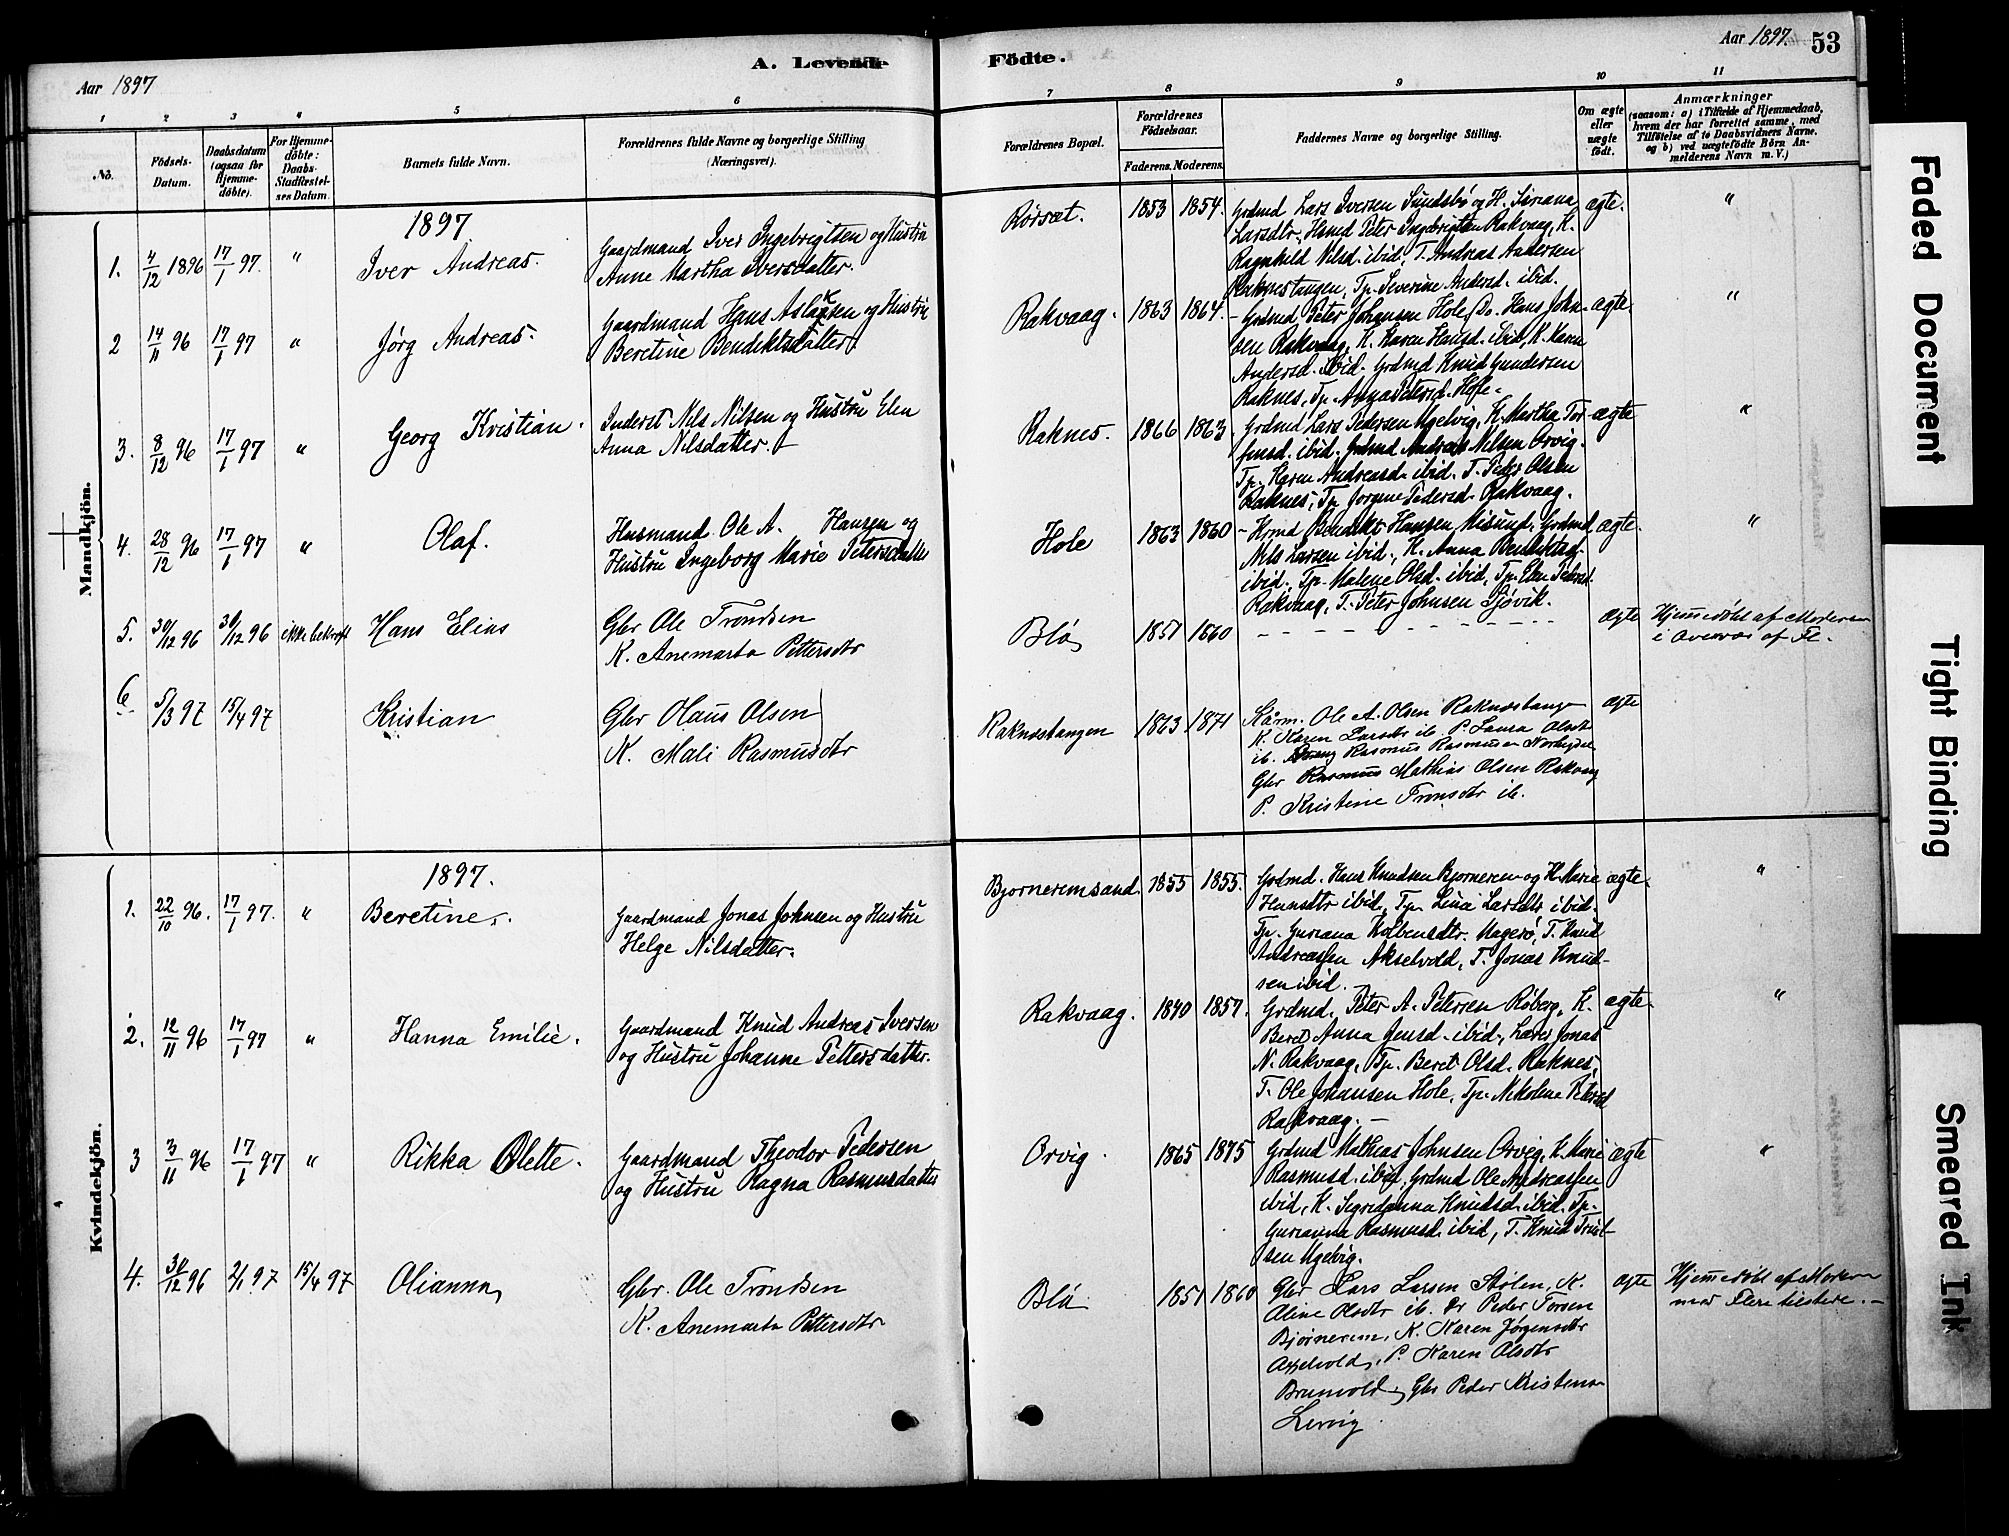 Aar 1897
A. Levende
Födte.
Aar 1897.
53
1
2
3
4
5
6
7
8
9
10
11
No.
Födsels-
Datum.
Daabsdatum
(ogsaa for
Hjemme-
döbte).
For Hjemme-
döbte:
Daabs-
Stadfæstel-
ses Datum.
Barnets fulde Navn.
Forældrenes fulde Navne og borgerlige Stilling
(Næringsvei).
Forældrenes Bopæl.
Forældrenes
Födselsaar.
Faderens.
Moderens.
Faddernes Navne og borgerlige Stilling.
Om ægte
eller
uægte
födt.
Anmærkninger
(saasom: a) i Tilfælde af Hjemmedaab,
hvem der har forrettet samme, med
Tilföielse af to Daabsvidners Navne,
og b) ved uægtefödte Börn An-
melderens Navn m. V.)
Mandkjön.
1897
1. 4/12 1896 17/1 97. " Iver Andreas.
Gaardmand Iver Ingebrigtsen og Hustru
Anne Martha Iversdatter.
Rörsæt. 1853 1854.
Grdmd Lars Iversen Sundsbö og H. Siriana
Larsdtr, Hsmd Peter Ingebrigtsen Rakvaag, K.
Ragnhild Nilsd. ibid, T. Andreas Andersen
Raknestangen, Tp. Severine Andersd. ibid.
ægte. "
2 14/11 96 17/1 97 " Jørg Andreas.
Gaardmand Hans Aslaksen og Hustru
Beretine Bendiktsdatter.
Rakvaag. 1863 1864.
Grdmd Peter Johansen Hole, Do. Hans John-
sen Rakvaag, K. Karen Hansd. ibid, K. Karen
Andersd. ibid. Grdmd Knud Gundersen
Raknes, Tp. Anna Petersd. Hole.
ægte. "
3. 8/12 96 17/1 97 " Georg Kristian.
Inderst Nils Nilsen og Hustru Elen
Anna Nilsdatter.
Raknes. 1866 1863.
Grdmd Lars Pedersen Ugelvig, K. Martha Tor-
finsd. ibid. Grdmd Andreas Nilsen Orvig.
Tp. Karen Andreasd. ibid. T. Peder Olsen
Raknes, Tp Jorgine Pedersd. Rakvaag.
ægte "
4. 28/12 96 17/1 97 " Olaf.
Husmand Ole A. Hansen og
Hustru Ingeborg Marie Petersdatter
Hole 1863 1860
Hsmd Bendikt Hansen Misund, Grdmd
Nils Larsen ibid, K. Anna Bendiktsd.
ibid. Tp. Malene Olsd. ibid, Tp. Elen Pedersd.
Rakvaag, T. Peter Johnsen Sjövik.
ægte. "
5. 30/12 96 30/12 96 ikke bekræft Hans Elias
Gbr Ole Trondsen
K. Anemarta Pettersdtr
Blø 1851 1860
ægte
Hjemmedøbt af Moderen
i Overvær af Fl.
6 5/3 97 15/4 97 Kristian
Gbr Olaus Olsen
K. Mali Rasmusdtr
Raknestangen 1863 1871
Kårm. Ole A. Olsen Raknestangen
K. Karen Larsdtr ib. P. Laura Olsdtr
ib. Rasmus Rasmussen
Gbr Rasmus Mathias Olsen Rakvaag
P. Kristine Tronsdtr ib.
ægte
Kvindekjön.
1897.
1. 22/10 96. 17/1 97. " Beretine.
Gaardmand Jonas Johnsen og Hustru
Helge Nilsdatter.
Bjornerimsand. 1855 1855.
Grdmd. Hans Knudsen Bjorneren og H. Marie
Hansdtr ibid, Tp. Lina Larsdtr ibid.
Tp. Guriana Kolbensdtr. Magerö, T. Knud
Andreassen Akselvold, T. Jonas Knud-
sen ibid.
ægte. "
2. 12/11 96 17/1 97 " Hanna Emilie.
Gaardmand Knud Andreas Iversen
og Hustru Johanne Pettersdatter.
Rakvaag. 1840 1857.
Grdmd. Peter A. Petersen Röberg, K.
Beret Anna Jensd. ibid, Lærer Jonas
N. Rakvaag, Tp. Beret Olsd. Raknes,
T. Ole Johansen Hole, Tp. Nikoline Petersd
Rakvaag.
ægte. "
3 3/11 96 17/1 97 " Rikka Olette.
Gaardmand Theodor Pedersen
og Hustru Ragna Rasmusdatter
Orvig. 1865 1875
Grdmd Mathias Johnsen Orvig, K. Marie
Rasmusd. ibid, Grdmd Ole Andreassen
ibid, K. Sigridanna Knudsd. ibid. Tp.
Gurianna Rasmusd. ibid, T. Knud
sen Ugelvig.
ægte "
4. 30/12 96 2/1 97 15/4 97 Olianna
Gbr. Ole Trondsen
K. Anemarta Pettersdtr
Blø 1851 1860
Gbr Lars Larsen Stølen, K.
Aline Olsdtr ib. Gr Peder Torsen
Bjørnerem, K. Karen Jørgensdtr
Axelvold, P. Karen Olsdtr
Brunvold, Gbr Peder Kristensen
Lervig.
ægte
Hjemmedøbt af Moderen
med Flere tilstede.
Faded Document
Tight Binding
Smeared Ink